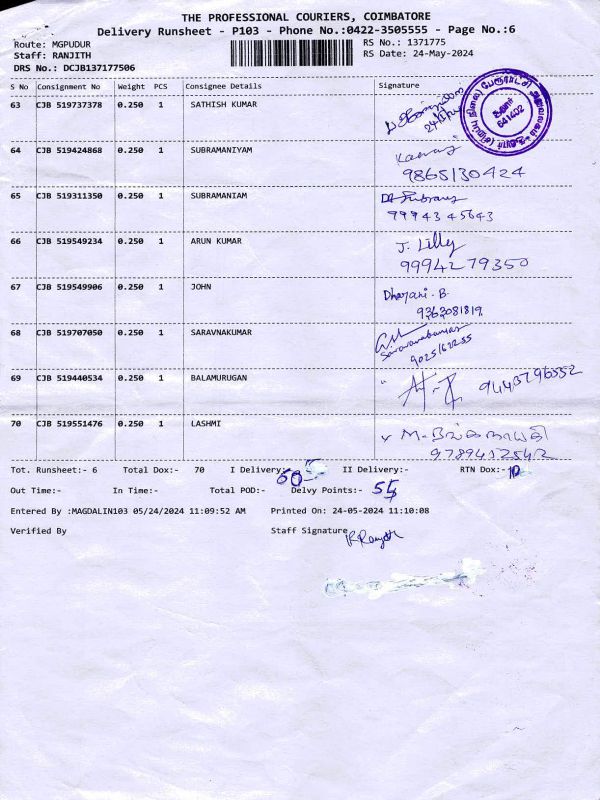 THE PROFESSIONAL COURIERS, COIMBATORE
Delivery Runsheet - P103 - Phone No.:0422-3505555 - Page No.:6
Route: MGPUDUR RS No.: 1371775
Staff: RANJITH RS Date: 24-May-2024
DRS No.: DCJB137177506
S No Consignment No Weight PCS Consignee Details Signature
63 CJB 519737378 0.250 1 SATHISH KUMAR
சூலூர்
641402
64 CJB 519424868 0.250 1 SUBRAMANIYAM
9865130424
65 CJB 519311350 0.250 1 SUBRAMANIAM
99943 45643
66 CJB 519549234 0.250 1 ARUN KUMAR J. Lilly
9994279350
67 CJB 519549906 0.250 1 JOHN Dharani.B
9363081819
68 CJB 519707050 0.250 1 SARAVNAKUMAR
Saravanakumar
69 CJB 519440534 0.250 1 BALAMURUGAN 9443796552
70 CJB 519551476 0.250 1 LASHMI
9789412542
Tot. Runsheet:- 6 Total Dox:- 70 I Delivery:- 60 II Delivery:- RTN Dox:- 10
Out Time:- In Time:- Total POD:- Delvy Points:- 55
Entered By :MAGDALIN103 05/24/2024 11:09:52 AM Printed On: 24-05-2024 11:10:08
Verified By Staff Signature